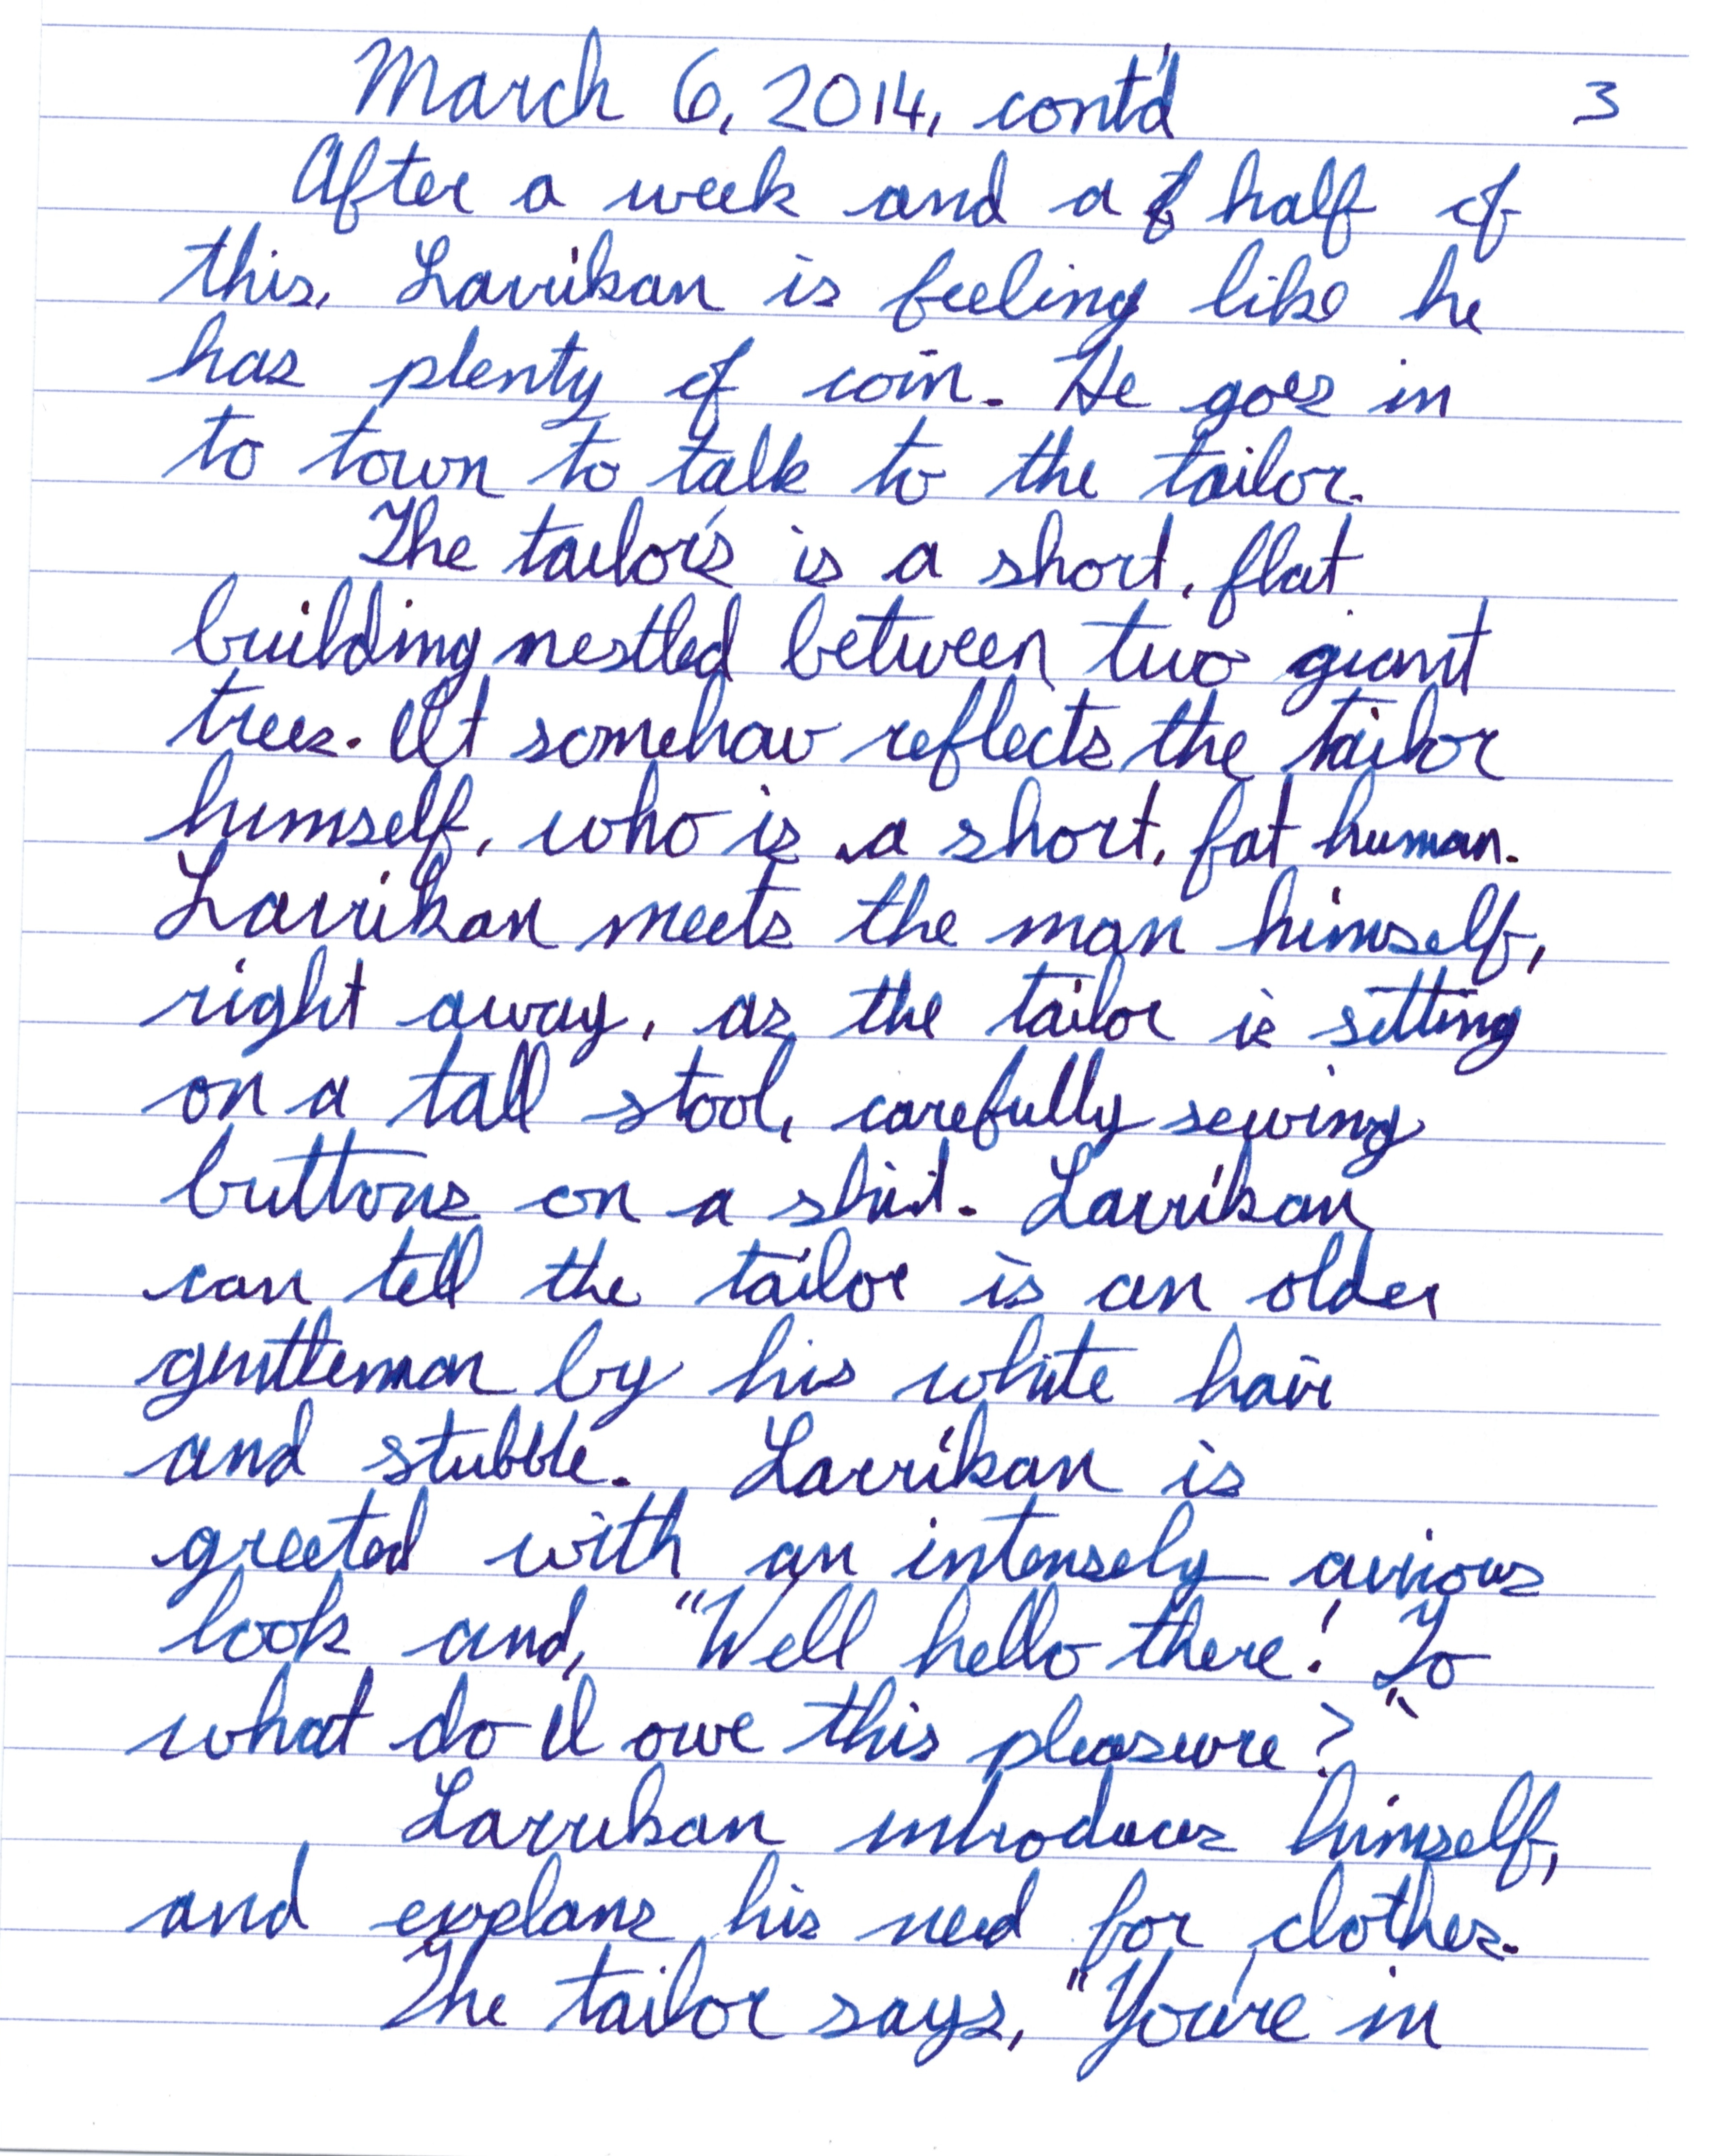 March 6, 2014, cont'd 3
After a week and a half of
this, Larrikan is feeling like he
has plenty of coin. He goes in
to town to talk to the tailor.
The tailor's is a short, flat
building nestled between two giant
trees. It somehow reflects the tailor
himself, who is a short, fat human.
Larrikan meets the man himself,
right away, as the tailor is sitting
on a tall stool, carefully sewing
buttons on a shirt. Larrikan
can tell the tailor is an older
gentleman by his white hair
and stubble. Larrikan is
greeted with an intensely curious
look and, "Well hello there! To
what do I owe this pleasure?"
Larrikan introduces himself,
and explans his need for clothes.
The tailor says, "You're in